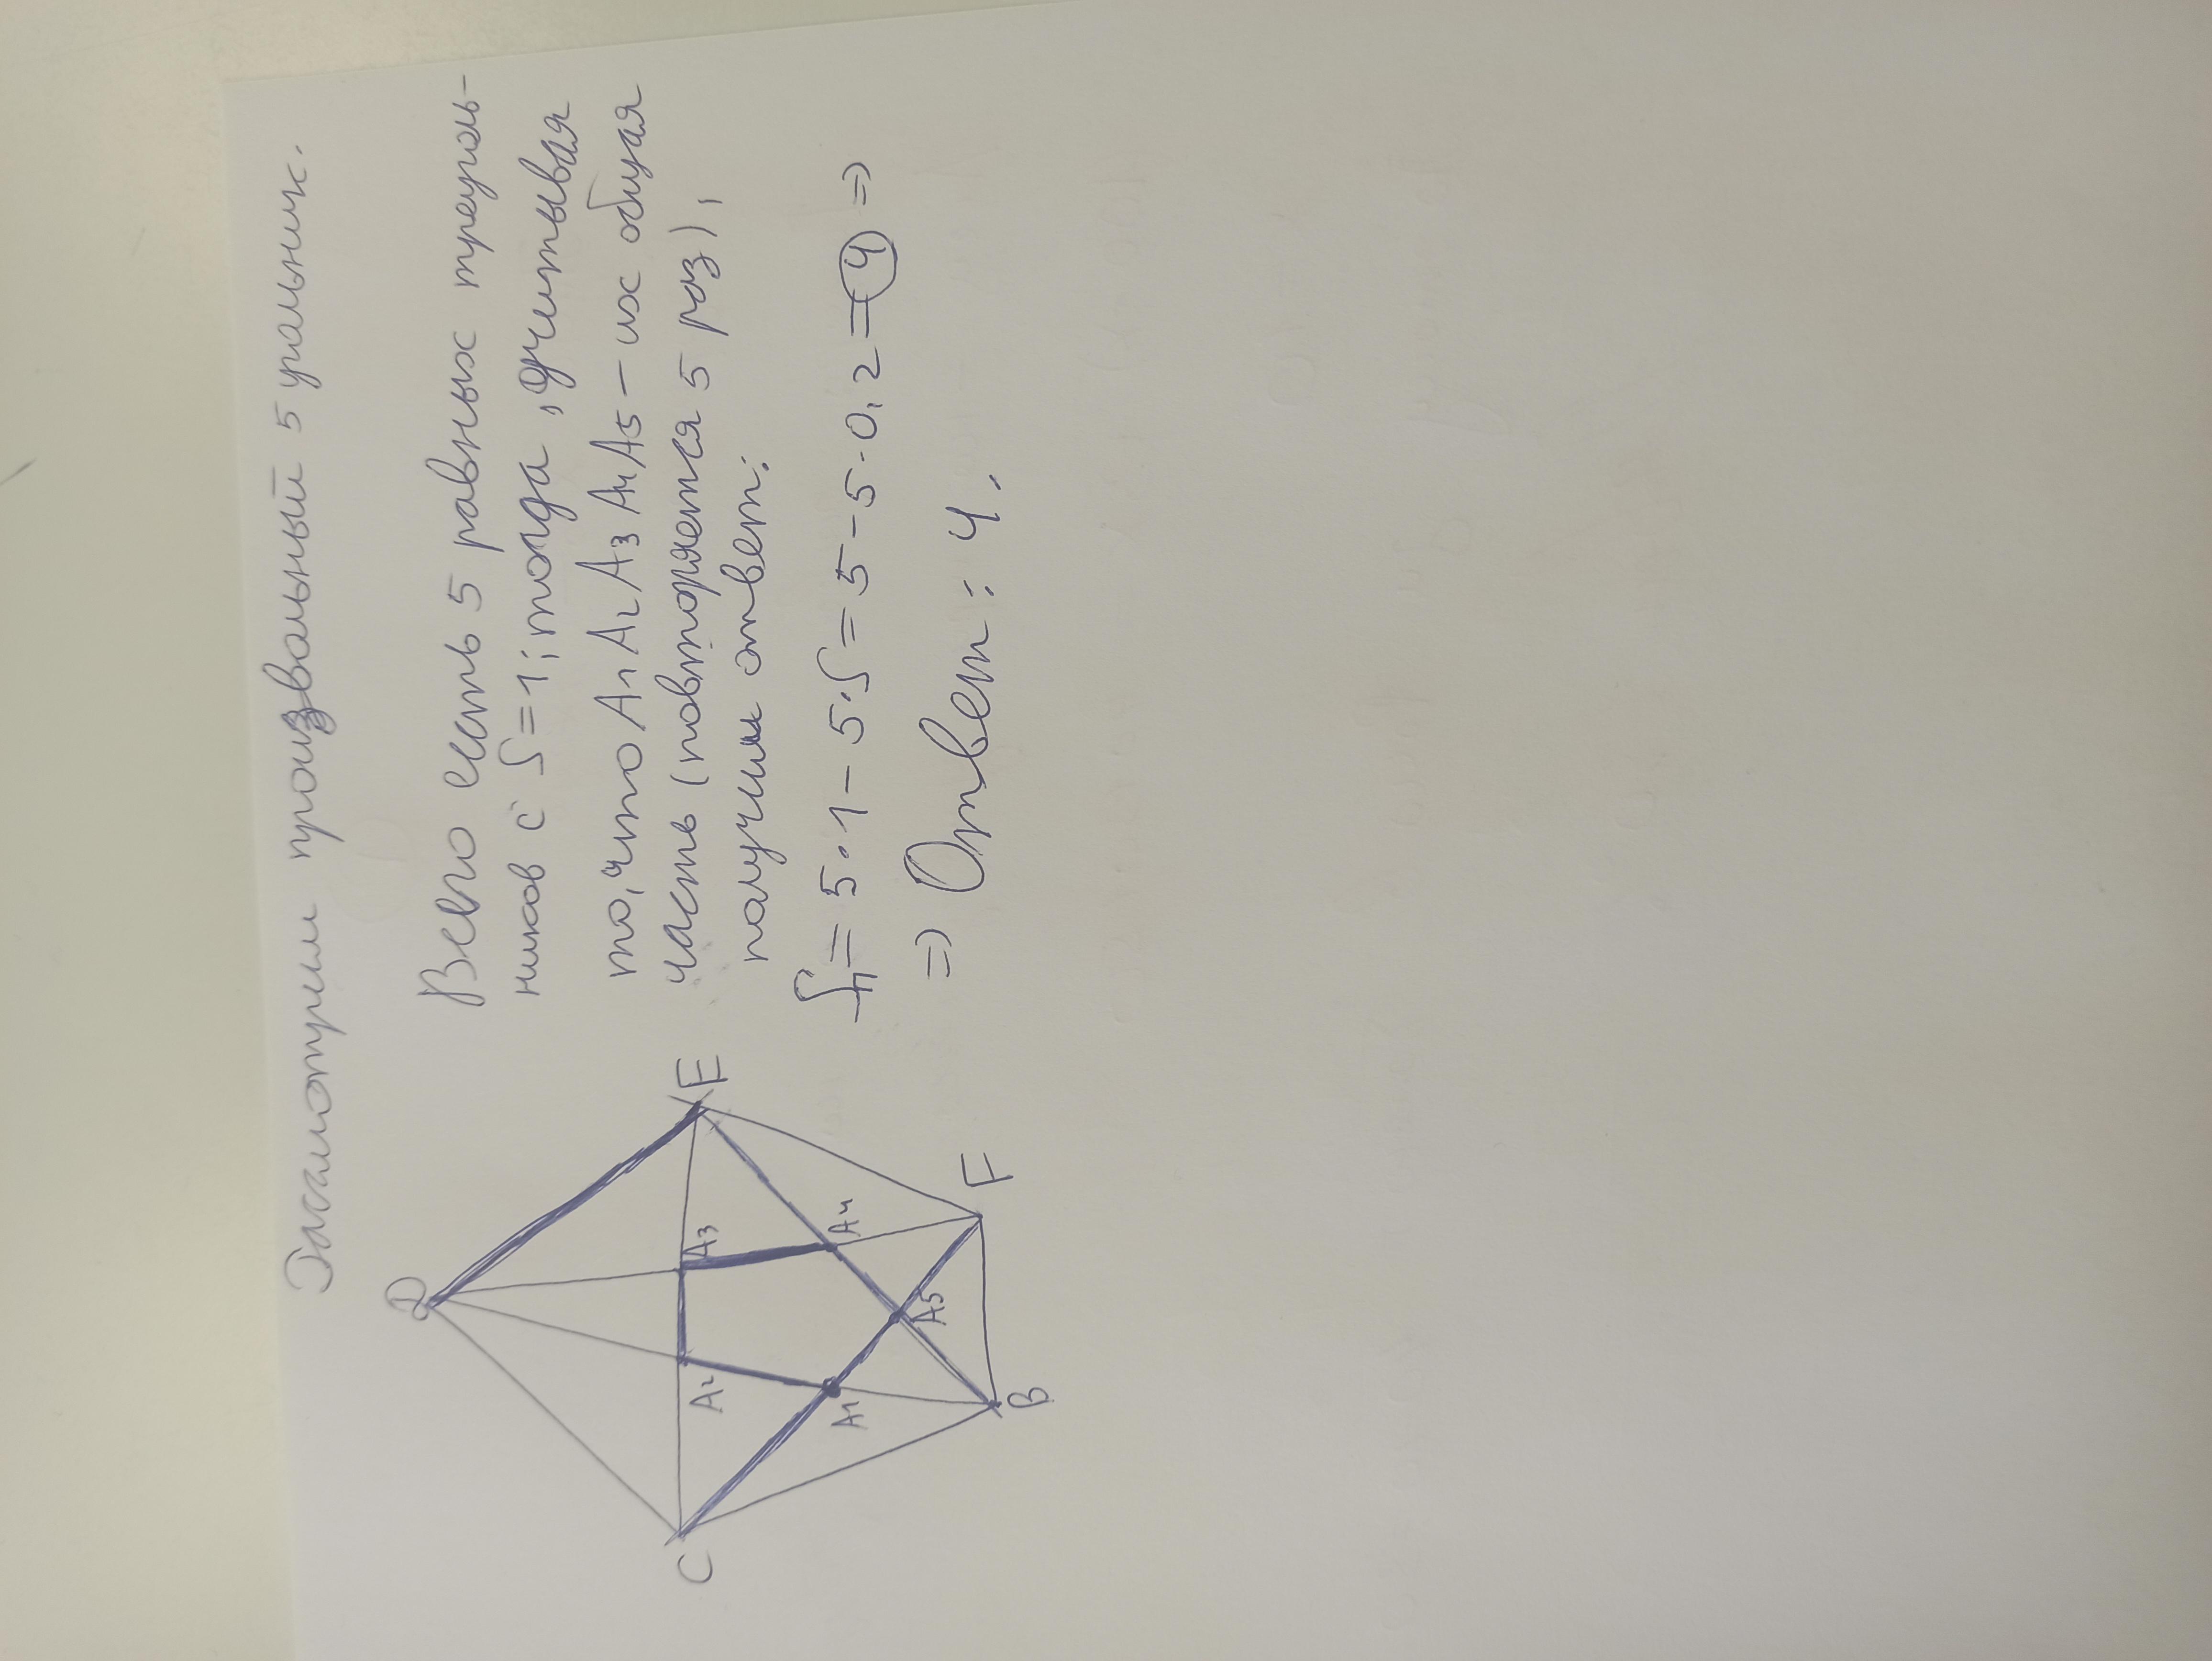 Рассмотрим произвольный 5 угольник.
Всего есть 5 равных треуголь-
ников с S=1; тогда, учитывая
то, что A1 A2 A3 A4 A5 – их общая
часть (повторяется 5 раз),
получим ответ:
Sп = 5·1 – 5·S = 5 – 5·0,2 = 4 =>
=> Ответ: 4.
D
C
E
A2
A3
A1
A4
A5
B
F